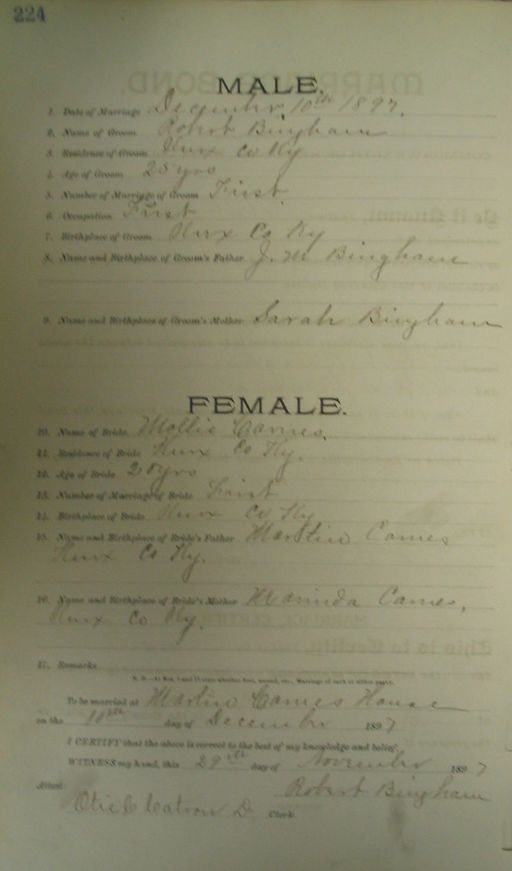 224
MALE.
1. Date of Marriage December 10th 1897.
2. Name of Groom Robert Bingham
3. Residence of Groom Knox Co Ky
4. Age of Groom 25 yrs
5. Number of Marriage of Groom First
6. Occupation First
7. Birthplace of Groom Knox Co Ky
8. Name and Birthplace of Groom's Father J. M Bingham
9. Name and Birthplace of Groom's Mother Sarah Bingham
FEMALE.
10. Name of Bride Mollie Carnes,
11. Residence of Bride Knox Co Ky.
12. Age of Bride 20 yrs
13. Number of Marriage of Bride First
14. Birthplace of Bride Knox Co Ky
15. Name and Birthplace of Bride's Father Martin Carnes
Knox Co Ky.
16. Name and Birthplace of Bride's Mother Carnes,
Knox Co Ky.
17. Remarks
To be married at Martin Carnes House
on the 10th day of December 1897
I CERTIFY that the above is correct to the best of my knowledge and belief.
WITNESS my hand, this 29th day of November 1897
Robert Bingham
Attest:
Catron D. Clerk